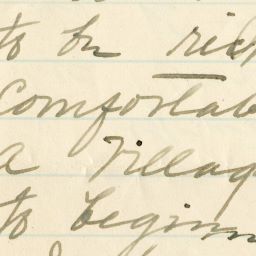 to be rich
comfortab
a villag
to beginn